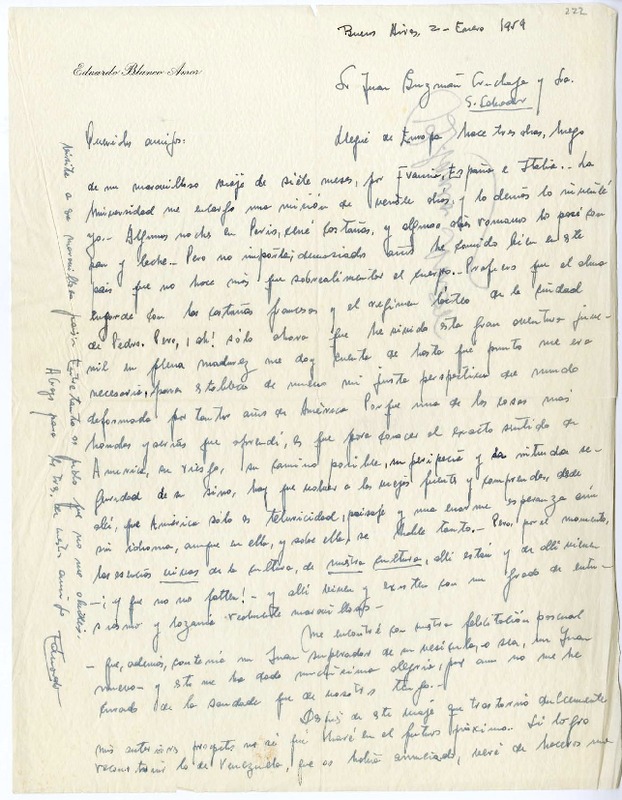 222
Buenos Aires, 2 - Enero 1959
Eduardo Blanco Amor
Sr Juan Guzmán Cruchaga y Sra.
S. Salvador
Queridos amigos: Llegué de Europa hace tres días, luego
de un maravilloso viaje de siete meses, por Francia, España e Italia. - La
Universidad me encargó una misión de veinte días y lo demás lo inventé
yo. - Algunas noches en París, cené castañas, y algunos días romanos los pasé con
pan y leche. - Pero no importa; demasiados años he comido bien en este
país que no hace más que sobrealimentar el cuerpo. - Prefiero que el alma
engorde con las castañas francesas y el régimen lácteo de la ciudad
de Pedro. Pero, ¡ah! sólo ahora que he vivido esta gran aventura juve-
nil en plena madurez me doy cuenta de hasta qué punto me era
necesaria, para establecer de nuevo mi justa perspectiva del mundo
deformada por tantos años de América. Porque una de las cosas más
hondas y serias que aprendí, es que para conocer el exacto sentido de
América, su riesgo, su camino posible, su peripecia y la intrincada se-
guridad de su sino, hay que volver a las viejas fuentes y comprender, desde
allí, que América sólo es teluricidad, paisaje y una enorme esperanza aún
sin idioma, aunque en ella, y sobre ella, se hable tanto. - Pero, por el momento,
las esencias vivas de la cultura, de nuestra cultura, allí están y de allí vienen
- ¡y que no nos falten! - y allí viven y existen con un grado de entu-
siasmo y lozanía realmente maravillosos -
Me encontré con vuestra felicitación pascual
- que, además, contenía un Juan superador de sí mismo, o sea, un Juan
nuevo - y esto me ha dado muchísima alegría, pues aún no me he
curado de la saudade que de vosotros tengo. -
Después de este viaje que trastornó dulcemente
mis anteriores proyectos no sé qué haré en el futuro próximo. Si logro
reconstruir lo de Venezuela, que os había anunciado, veré de haceros una
visita a ese maravilloso país. Entre tanto os pido que no me olvidéis.
Abrazos para los tres de vuestro amigo
Eduardo